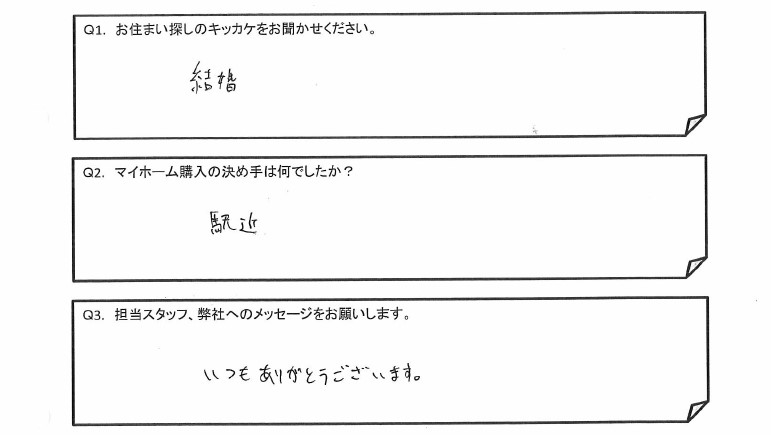 Q1. お住まい探しのキッカケをお聞かせください。
結婚
Q2. マイホーム購入の決め手は何でしたか？
駅近
Q3. 担当スタッフ、弊社へのメッセージをお願いします。
いつもありがとうございます。